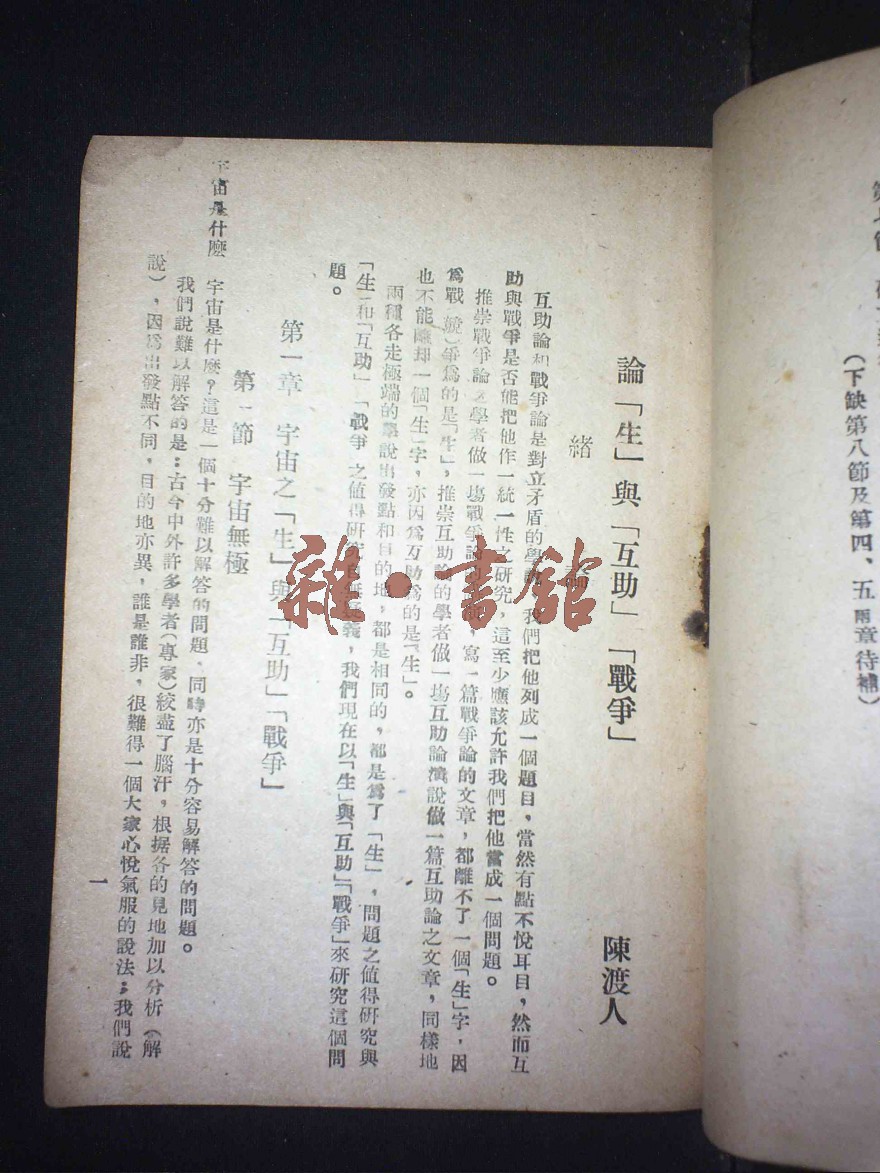 (下缺第八節及第四、五兩章待補)
論「生」與「互助」「戰爭」
陳渡人
緒論
互助論和戰爭論是對立矛盾的學說，我們把他列成一個題目，當然有點不悅耳目，然而互
助與戰爭是否能把他作一統一性之研究，這至少應該允許我們把他當成一個問題。
推崇戰爭論之學者做一場戰爭論，寫一篇戰爭論的文章，都離不了一個「生」字，因
爲戰(競)爭爲的是「生」，推崇互助論的學者做一場互助論演說做一篇互助論之文章，同樣地
也不能離却一個「生」字，亦因爲互助爲的是「生」。
兩種各走極端的學說出發點和目的地，都是相同的，都是爲了「生」，問題之値得研究與
「生」和「互助」「戰爭」之値得研究自無疑義，我們現在以「生」與「互助」「戰爭」來研究這個問
題。
第一章 宇宙之「生」與「互助」「戰爭」
第一節 宇宙無極
宇宙是什麼 宇宙是什麼？這是一個十分難以解答的問題．同時亦是十分容易解答的問題。
我們說難以解答的是：古今中外許多學者(專家)絞盡了腦汗，根据各的見地加以分析(解
說)，因爲出發點不同，目的地亦異，誰是誰非，很難得一個大家心悅氣服的說法；我們說
一
雜·書館